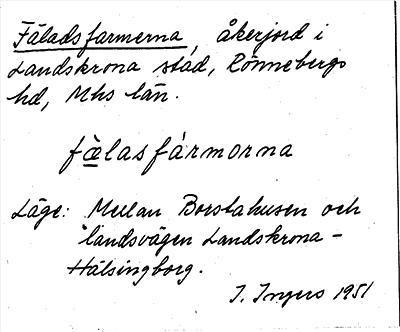 Fäladsfarmerna, åkerjord i
Landskrona stad, Rönnebergs
hd, Mhs län.
fä̀lasfármorna
Läge: Mellan Borstahusen och
landsvägen Landskrona -
Hälsingborg.
I. Ingers 1951